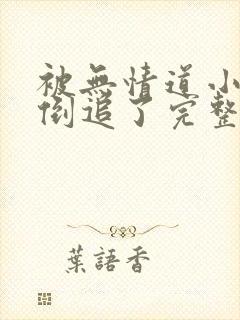 被無情道小
倒追了完整
葉語香